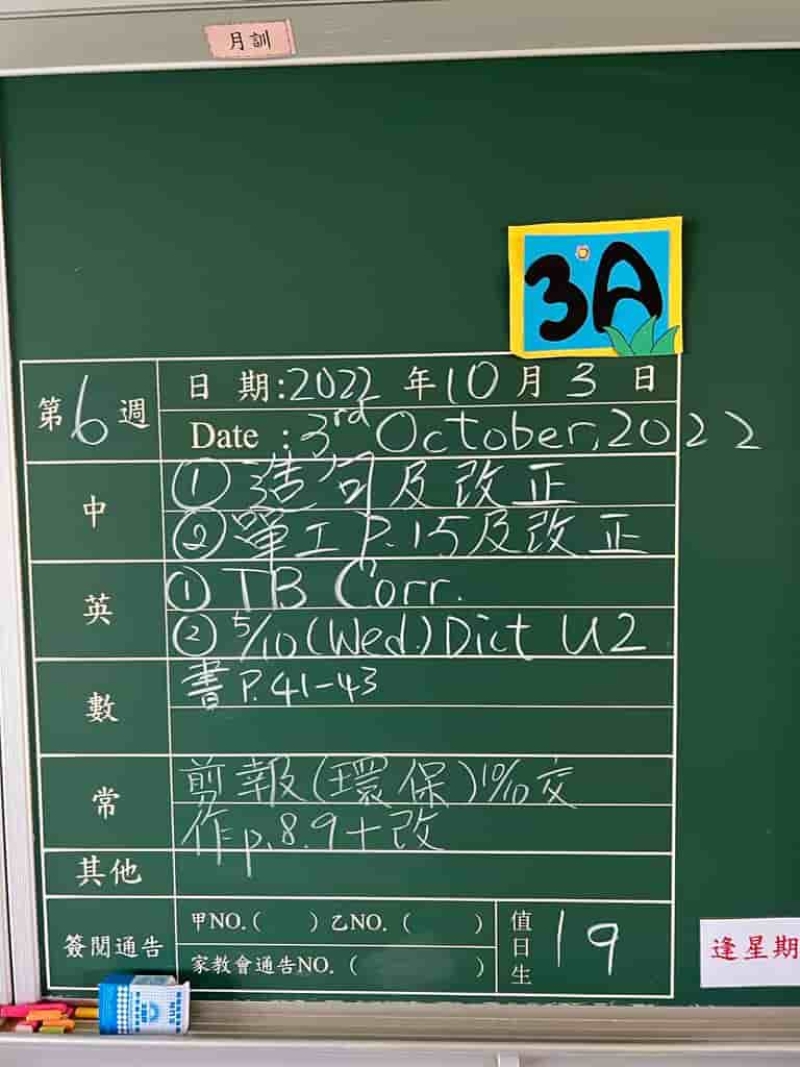 月訓
3A
第6週
日期:2022年10月3日
Date : 3rd October, 2022
中
① 造句及改正
② 單工 P.15及改正
英
① TB Corr.
② 5/10 (Wed.) Dict U2
數
書 P.41-43
常
剪報(環保)10/10交
作p.8.9+改
其他
簽閱通告
甲NO.( ) 乙NO. ( )
家教會通告NO. ( )
值日生
19
逢星期